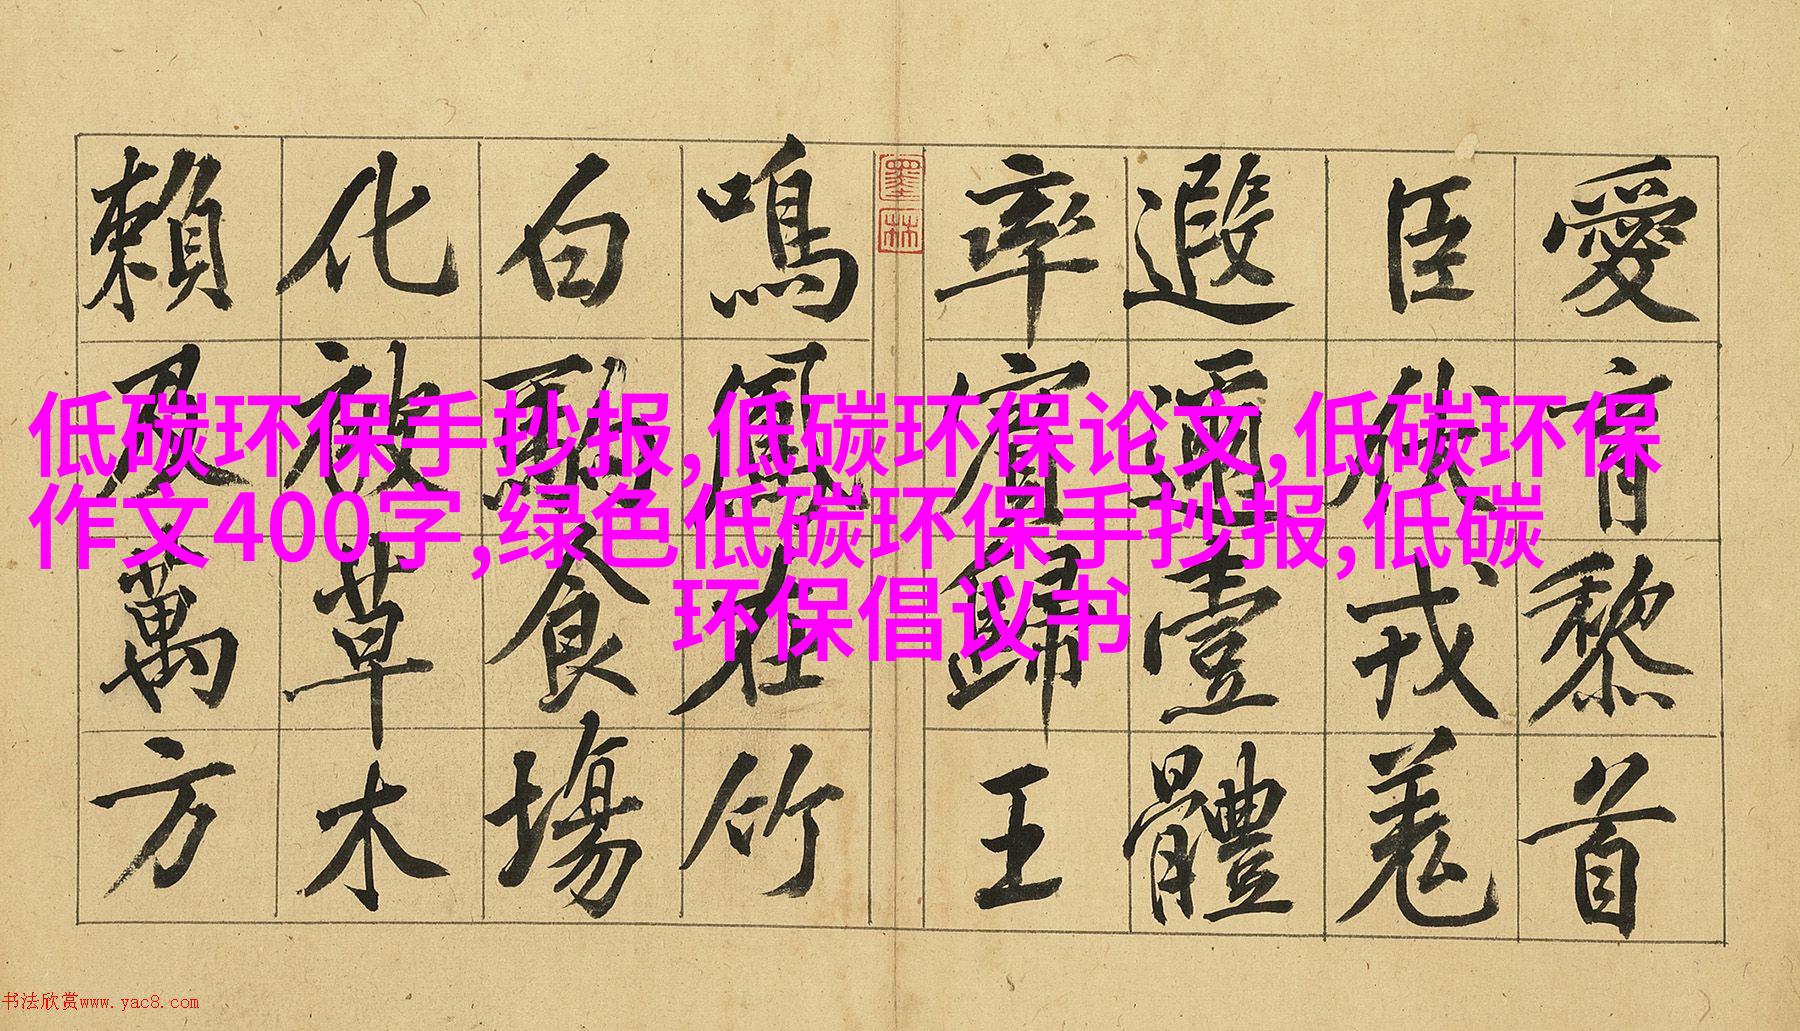 愛育黎首
臣伏戎羌
遐邇壹體
率賓歸王
墨林
鳴鳳在竹
白駒食場
化被草木
賴及萬方
低碳环保手抄报,低碳环保论文,低碳环保
作文400字,绿色低碳环保手抄报,低碳
环保倡议书
书法欣赏www.yac8.com